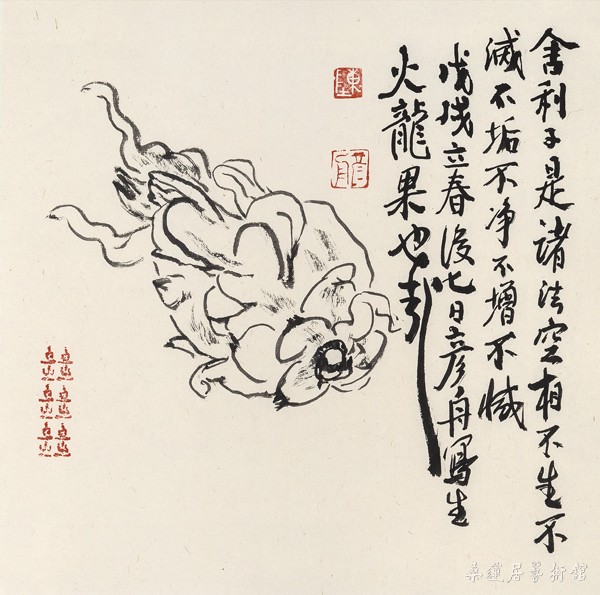 舍利子是諸法空相不生不
滅不垢不净不增不減
戊戌立春後七日彦舟寫生
火龍果也
桑蓮居藝術館